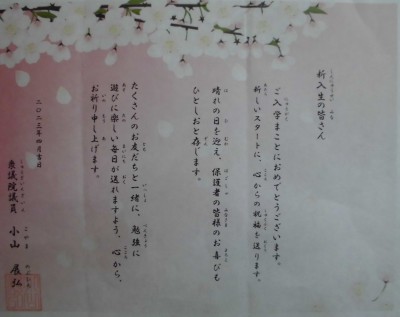 新入生の皆さん
ご入学まことにおめでとうございます。
新しいスタートに、心からの祝福を送ります。
晴れの日を迎え、保護者の皆様のお喜びも
ひとしおと存じます。
たくさんのお友だちと一緒に、勉強に
遊びに楽しい毎日が送れますよう、心から、
お祈り申し上げます。
二〇二三年四月吉日
衆議院議員 小山 展弘